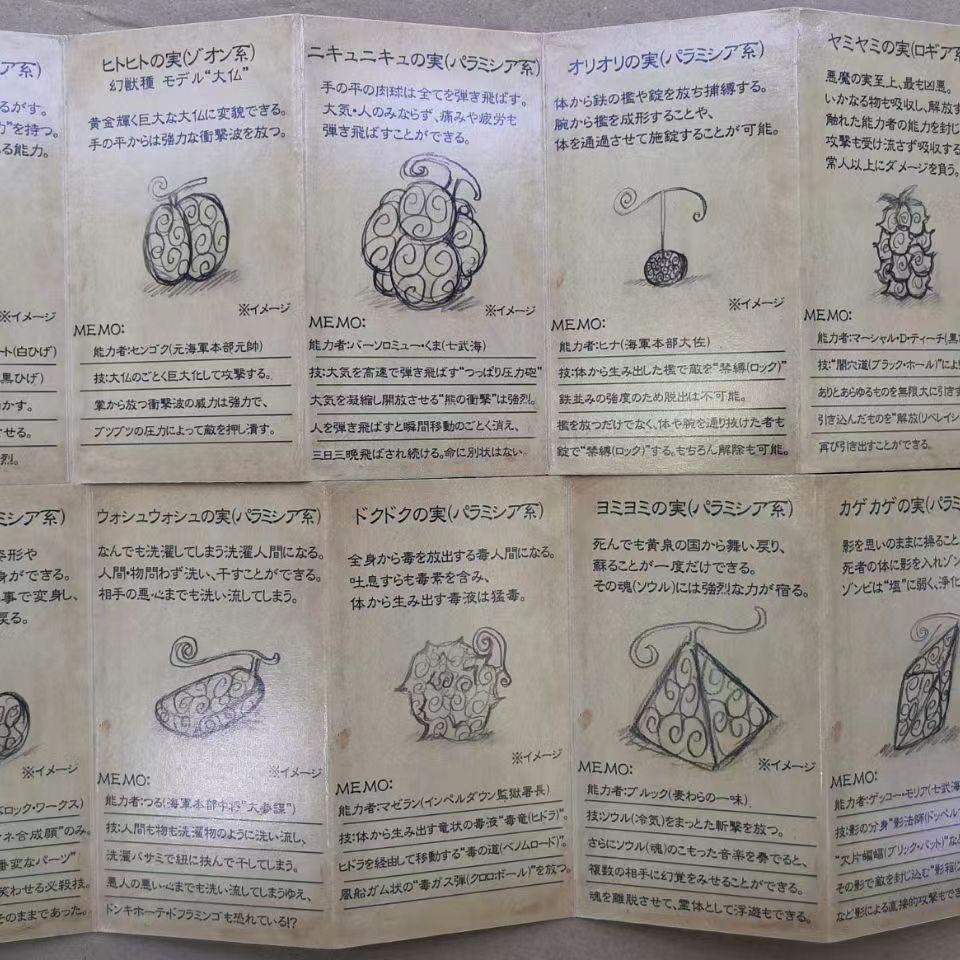 ア系)
るがす。
力"を持つ。
る能力。
※イメージ
ート(白ひげ)
黒ひげ)
かす。
させる。
烈。
ヒトヒトの実(ゾオン系)
幻獣種 モデル"大仏"
黄金輝く巨大な大仏に変貌できる。
手の平からは強力な衝撃波を放つ。
※イメージ
MEMO:
能力者:センゴク(元海軍本部元帥)
技:大仏のごとく巨大化して攻撃する。
掌から放つ衝撃波の威力は強力で、
ブツブツの圧力によって敵を押し潰す。
ニキュニキュの実(パラミシア系)
手の平の肉球は全てを弾き飛ばす。
大気・人のみならず、痛みや疲労も
弾き飛ばすことができる。
※イメージ
MEMO:
能力者:バーソロミュー・くま(七武海)
技:大気を高速で弾き飛ばす"つっぱり圧力砲"
大気を凝縮し開放させる"熊の衝撃"は強烈。
人を弾き飛ばすと瞬間移動のごとく消え、
三日三晩飛ばされ続ける。命に別状はない。
オリオリの実(パラミシア系)
体から鉄の檻や錠を放ち捕縛する。
腕から檻を成形することや、
体を通過させて施錠することが可能。
※イメージ
MEMO:
能力者:ヒナ(海軍本部大佐)
技:体から生み出した檻で敵を"禁縛(ロック)"
鉄並みの強度のため脱出は不可能。
檻を放つだけでなく、体や腕を通り抜けた者も
錠で"禁縛(ロック)"する。もちろん解除も可能。
ヤミヤミの実(ロギア系
悪魔の実史上、最も凶悪。
いかなる物も吸収し、解放す
触れた能力者の能力を封じ
攻撃も受け流さず吸収する
常人以上にダメージを負う。
MEMO:
能力者:マーシャル・D・ティーチ(黒
技:"闇穴道(ブラック・ホール)"によ
ありとあらゆるものを無限大に引きす
引き込んだものを"解放(リベレイシ
再び引き出すことができる。
ミシア系)
姿形や
身ができる。
事で変身し、
戻る。
※イメージ
ロック・ワークス)
ネ合成顔"のみ。
番変なパーツ"
笑わせる必殺技。
そのままであった。
ウォシュウォシュの実(パラミシア系)
なんでも洗濯してしまう洗濯人間になる。
人間・物問わず洗い、干すことができる。
相手の悪い心までも洗い流してしまう。
※イメージ
MEMO:
能力者:つる(海軍本部中将"大参謀")
技:人間も物も洗濯物のように洗い流し、
洗濯バサミで紐に挟んで干してしまう。
悪人の悪い心までも洗い流してしまうゆえ、
ドンキホーテ・ドフラミンゴも恐れている!?
ドクドクの実(パラミシア系)
全身から毒を放出する毒人間になる。
吐息すらも毒素を含み、
体から生み出す毒液は猛毒。
※イメージ
MEMO:
能力者:マゼラン(インペルダウン監獄署長)
技:体から生み出す竜状の毒液"毒竜(ヒドラ)"。
ヒドラを経由して移動する"毒の道(ベノムロード)"。
風船ガム状の"毒ガス弾(クロロボール)"を放つ。
ヨミヨミの実(パラミシア系)
死んでも黄泉の国から舞い戻り、
蘇ることが一度だけできる。
その魂(ソウル)には強烈な力が宿る。
※イメージ
MEMO:
能力者:ブルック(麦わらの一味)
技:ソウル(冷気)をまとった斬撃を放つ。
さらにソウル(魂)のこもった音楽を奏でると、
複数の相手に幻覚をみせることができる。
魂を離脱させて、霊体として浮遊もできる。
カゲカゲの実(パラミ
影を思いのままに操ること
死者の体に影を入れゾン
ゾンビは"塩"に弱く、浄化
MEMO:
能力者:ゲッコー・モリア(七武海
技:影の分身"影法師(ドッペル
"欠片蝙蝠(ブリック・バット)"など
その影で敵を封じ込む"影箱
など影による直接的攻撃もでき